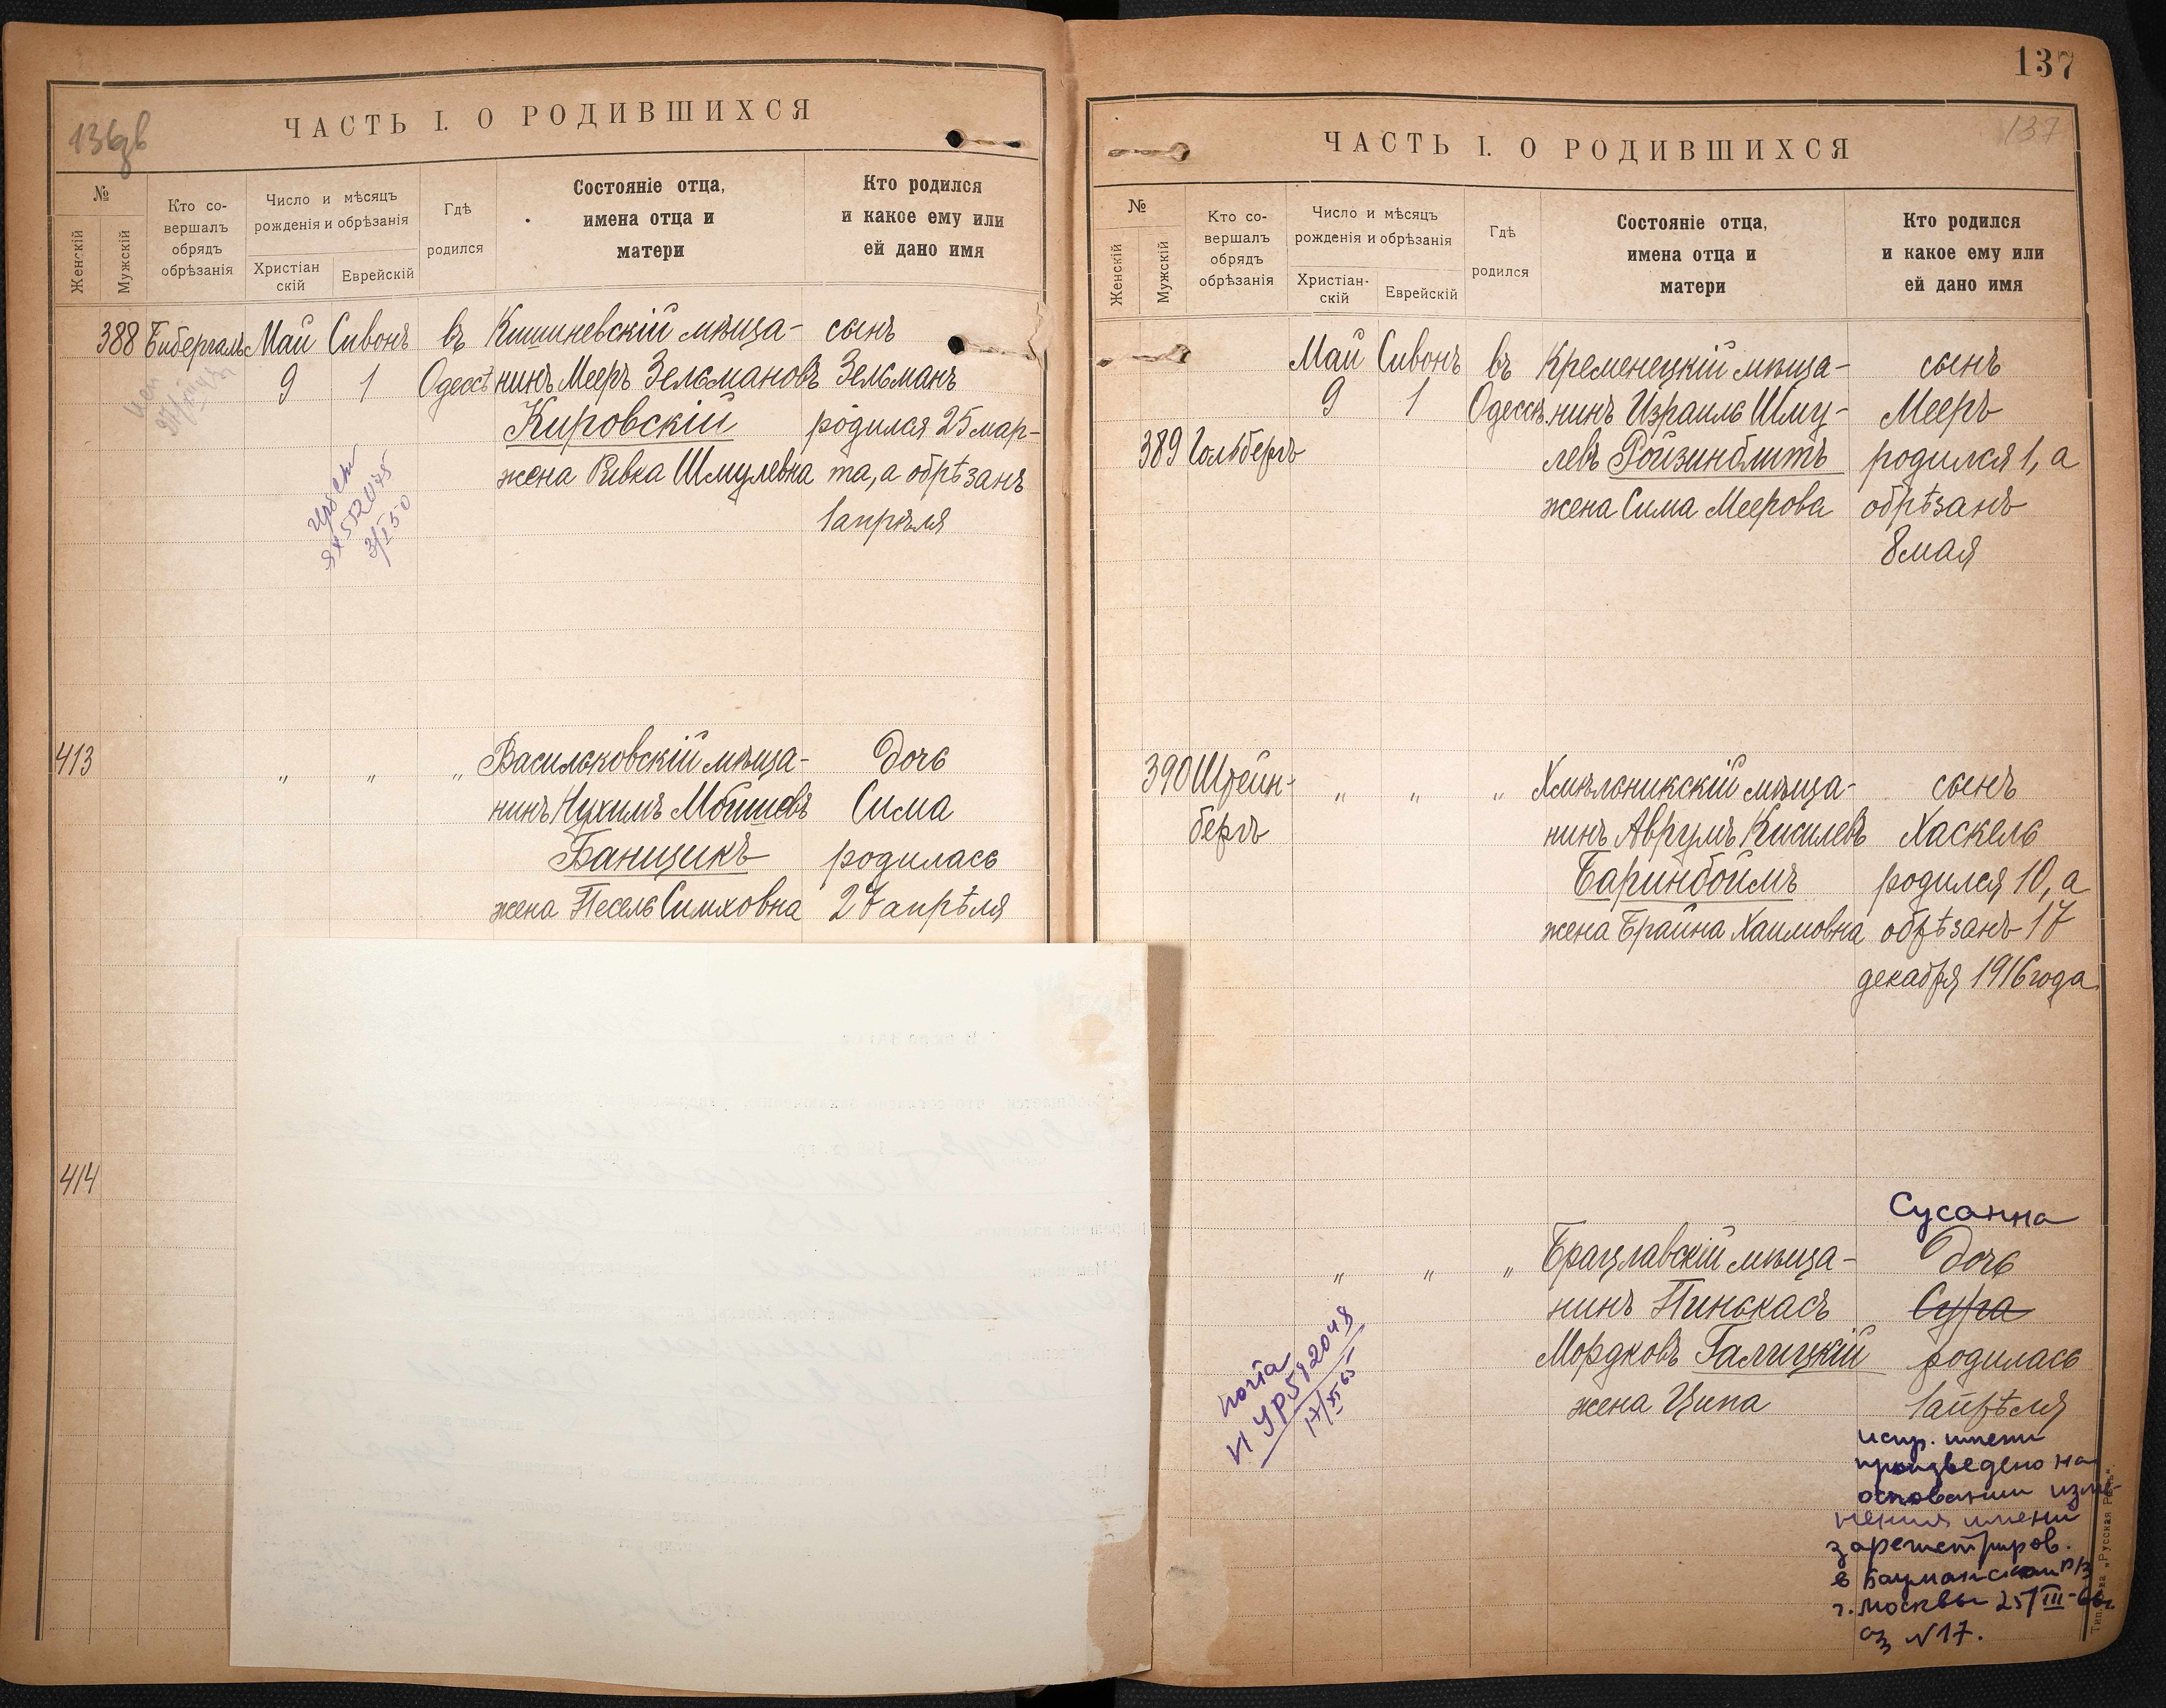 136 об
ЧАСТЬ I. О РОДИВШИХСЯ
№
Женскій
Мужскій
Кто со-
вершалъ
обрядъ
обрѣзанія
Число и мѣсяцъ
рожденія и обрѣзанія
Христіан
скій
Еврейскій
Гдѣ
родился
Состояніе отца,
имена отца и
матери
Кто родился
и какое ему или
ей дано имя
388 Бибергаль Май Сивонъ въ Кишиневскій мѣща- сынъ
9 1 Одессѣ нинъ Мееръ Зельмановъ Зельманъ
Кировскій родился 25 мар-
жена Ривка Шмулевна та, а обрѣзанъ
1 апрѣля
3/I 50
413 " " " Васильковскій мѣща- дочь
нинъ Нухимъ Мошковъ Сима
Банщикъ родилась
жена Песель Симховна 27 апрѣля
414
137
137
ЧАСТЬ I. О РОДИВШИХСЯ
№
Женскій
Мужскій
Кто со-
вершалъ
обрядъ
обрѣзанія
Число и мѣсяцъ
рожденія и обрѣзанія
Христіан-
скій
Еврейскій
Гдѣ
родился
Состояніе отца,
имена отца и
матери
Кто родился
и какое ему или
ей дано имя
Май Сивонъ въ Кременецкій мѣща- сынъ
9 1 Одессѣ нинъ Израиль Шму- Мееръ
389 Гольбергъ левъ Ройзинблитъ родился 1, а
жена Сима Меерова обрѣзанъ
8 мая
390 Штейн- " " " Хмѣльникскій мѣща- сынъ
бергъ нинъ Аврумъ Кисилевъ Хаскель
Баринбоймъ родился 10, а
жена Брайна Хаимовна обрѣзанъ 17
декабря 1916 года
Сусанна
" " " Брацлавскій мѣща- дочь
нинъ Пинькасъ Сура
Мордковъ Галицкій родилась
жена Ципа 1 апрѣля
почта
17/XI 65
испр. имени
произведено на
основании изме-
нения имени
зарегистриров.
в Бауманском
г. Москвы 25/III-66г
аз N17.
Типо „Русская Рѣчь“.